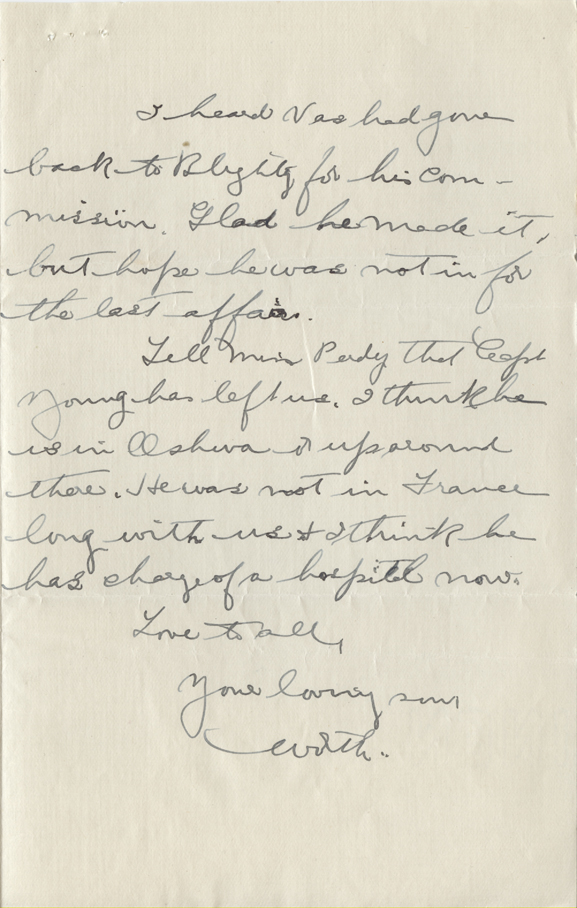 I heard Vas had gone
back to Blighty for his com-
mission. Glad he made it,
but hope he was not in for
the last affair.
Tell Miss Perdy that Capt
Young has left us. I think he
is in Oshwa or up around
there. He was not in France
long with us & I think he
has charge of a hospital now.
Love to all,
Your loving son,
Worth.